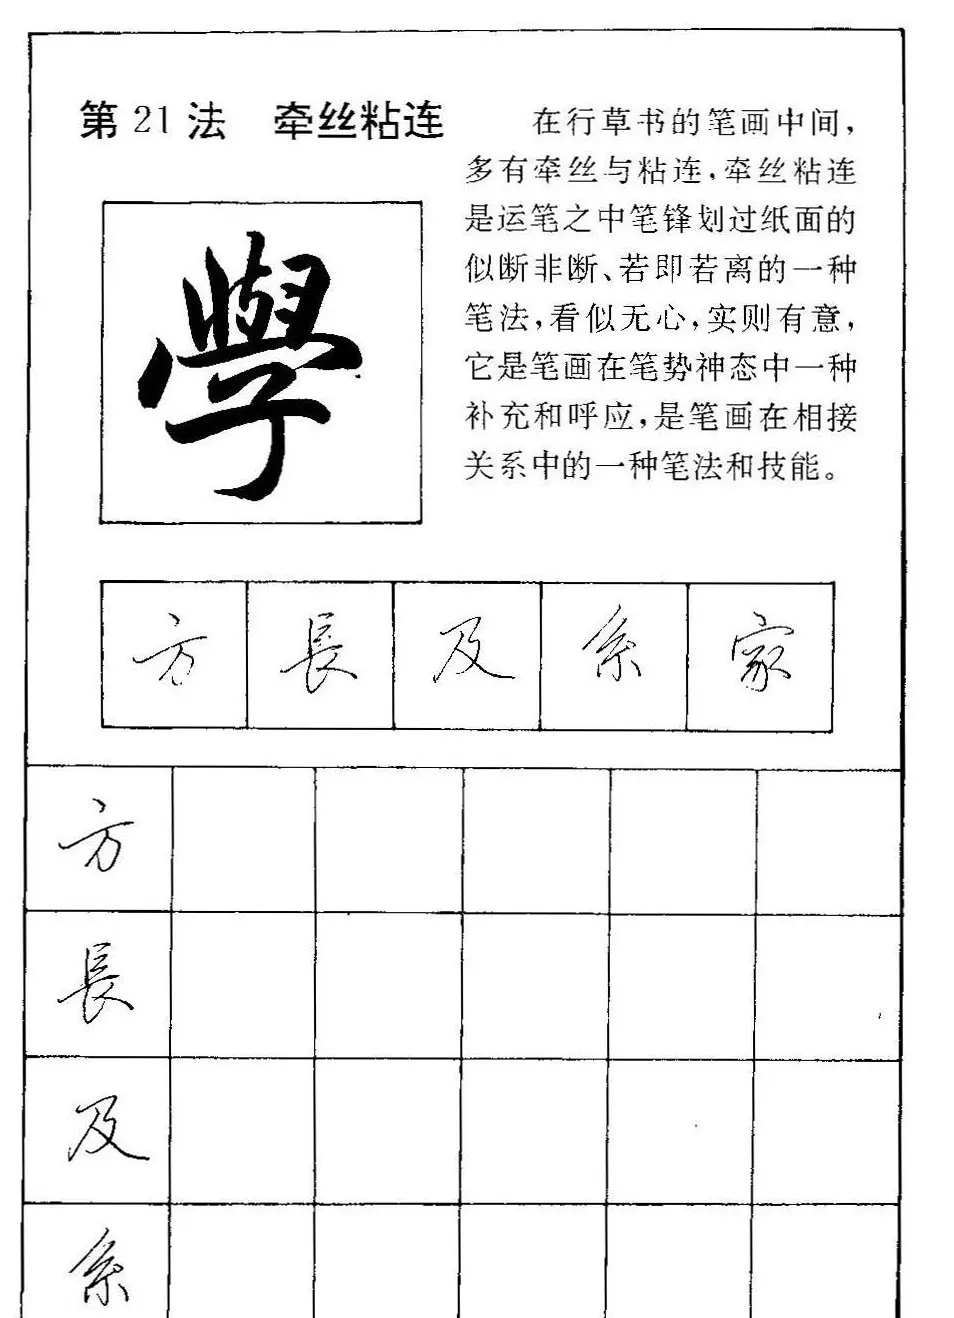 第21法 牵丝粘连
在行草书的笔画中间，
多有牵丝与粘连，牵丝粘连
是运笔之中笔锋划过纸面的
似断非断、若即若离的一种
笔法，看似无心，实则有意，
它是笔画在笔势神态中一种
补充和呼应，是笔画在相接
关系中的一种笔法和技能。
學
方 長 及 系 家
方
長
及
系